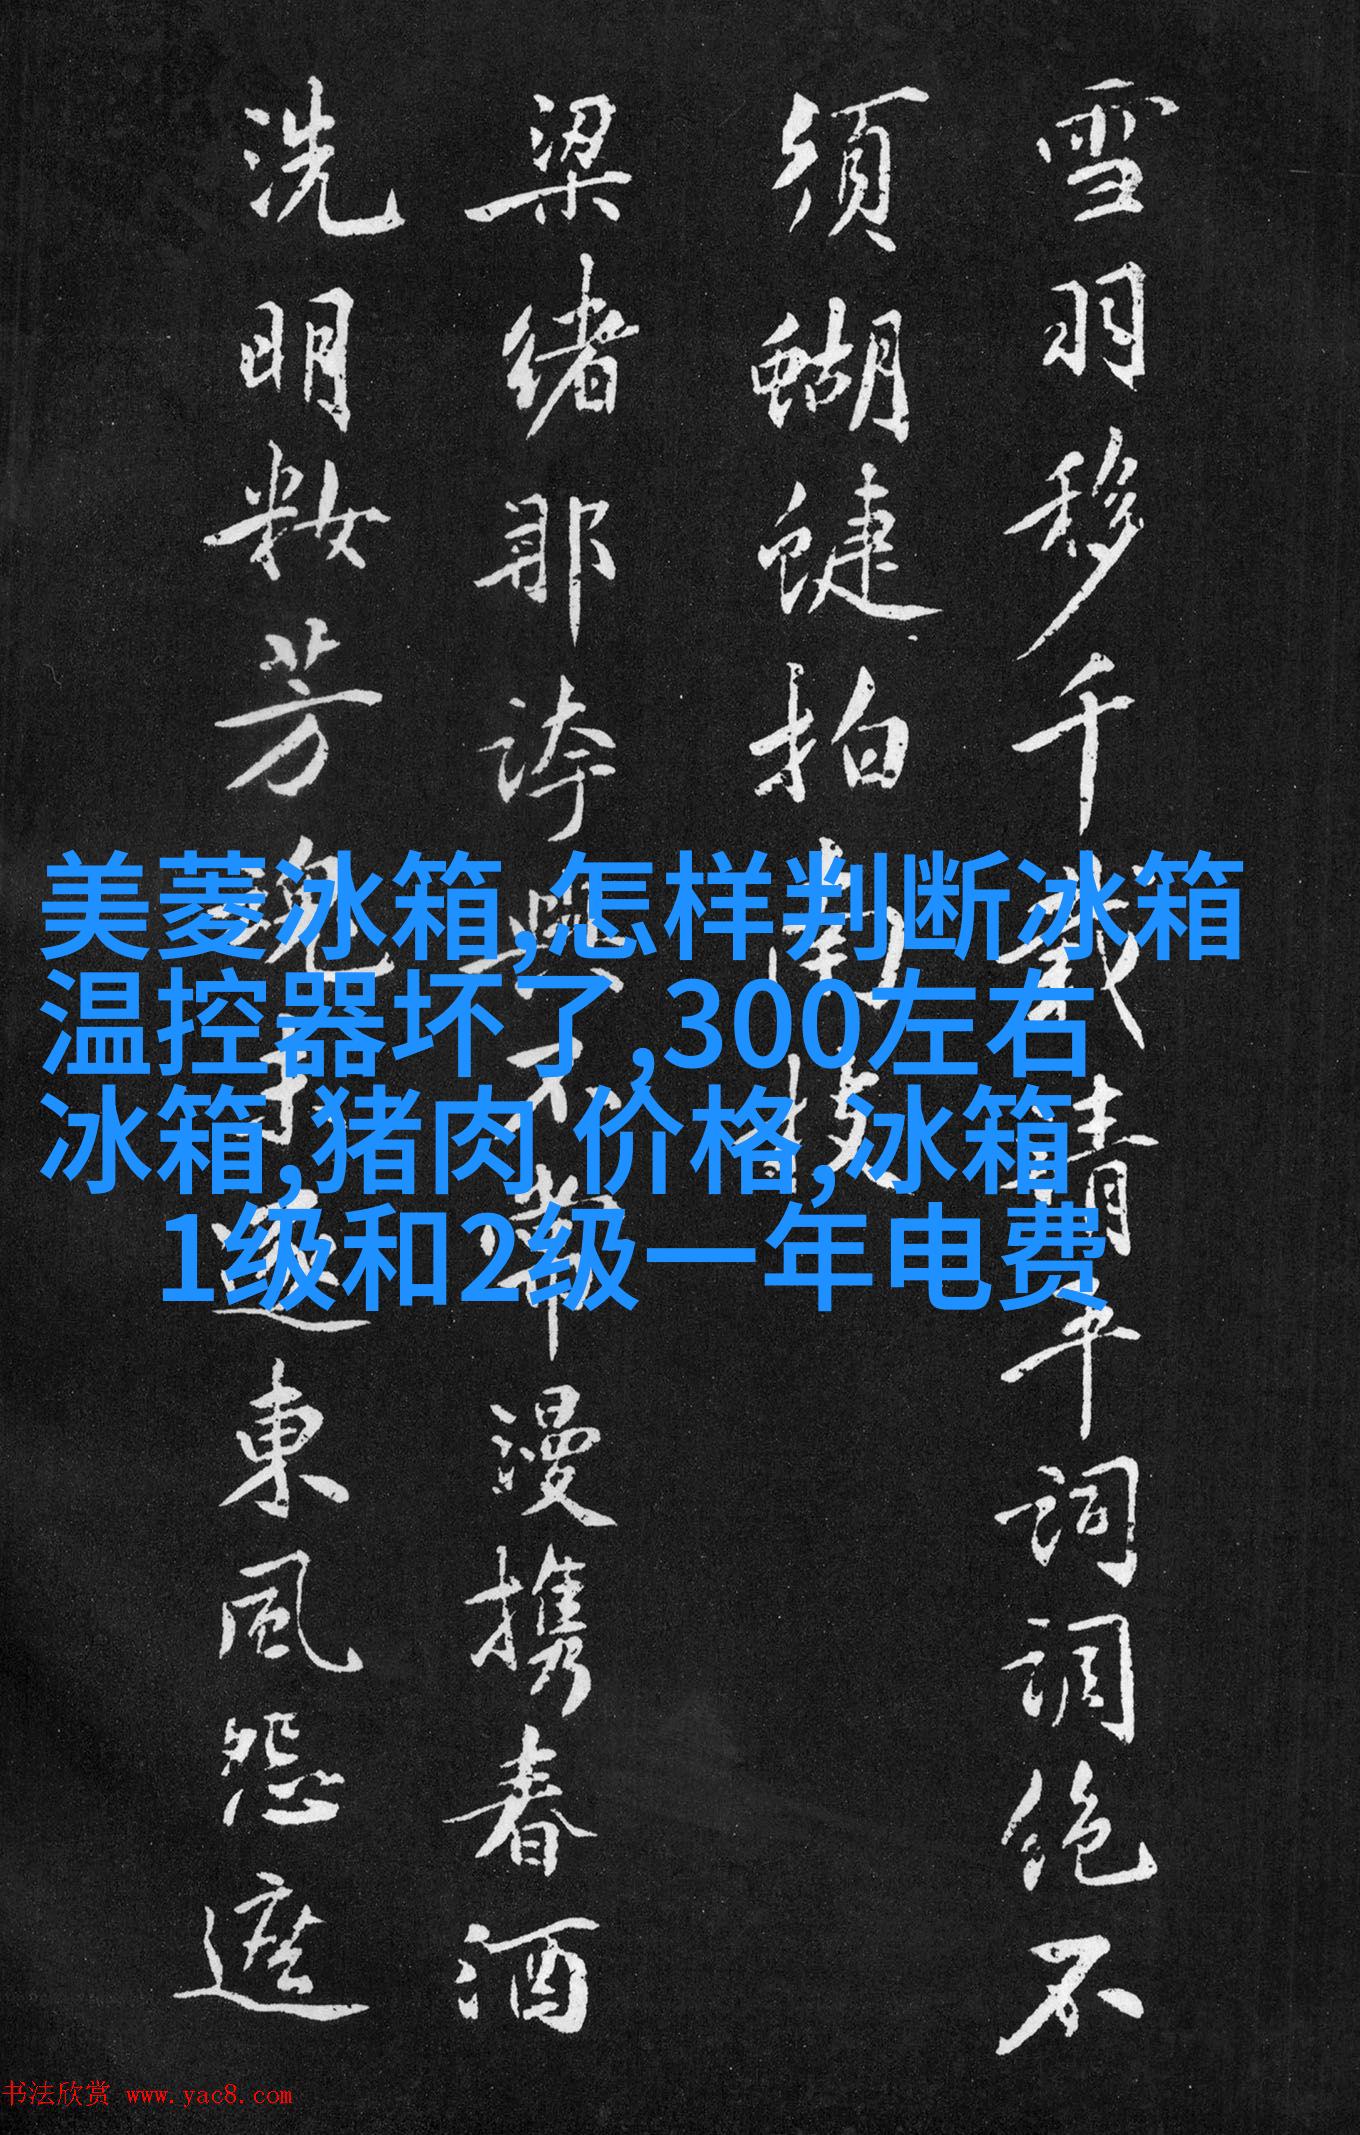 美菱冰箱,怎样判断冰箱
温控器坏了,300左右
冰箱,猪肉 价格,冰箱
1级和2级一年电费
雪羽移千載清平詞調絶不
須蝴蜨拍南枝
梁緒那誇興不漫携春酒
洗明粧芳魂東風怨遮
书法欣赏 www.yac8.com